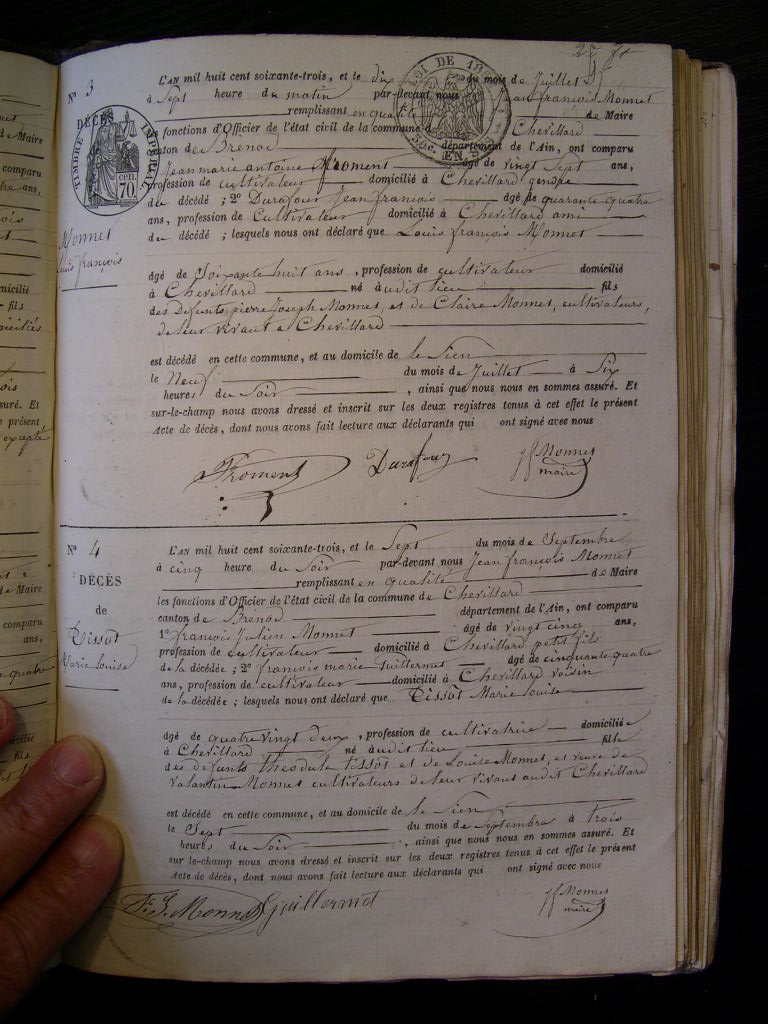 25 
N° 3
L'AN mil huit cent soixante-trois, et le dix du mois de Juillet
à Sept heure du matin par-devant nous Jean françois Monnet
remplissant en qualité de Maire
DÉCÈS
de
TIMBRE IMPÉRIAL
70 cen.
LOI DE
50c. EN
les fonctions d'Officier de l'état civil de la commune de Chevillard
canton de Brenod département de l'Ain, ont comparu
1° Jeanmarie antoine Froment âgé de vingt Sept ans,
profession de cultivateur domicilié à Chevillard gendre
du décédé ; 2° Durafour Jean françois âgé de quarante quatre
ans, profession de Cultivateur domicilié à Chevillard ami
du décédé ; lesquels nous ont déclaré que Louis françois Monnet
Monnet
Louis françois
âgé de Soixante huit ans, profession de cultivateur domicilié
à Chevillard né audit lieu fils
des Defunts pierre Joseph Monnet, et de Claire Monnet, cultivateurs,
de leur vivant à Chevillard
est décédé en cette commune, et au domicile de le Sien
le Neuf du mois de Juillet à Six
heures du Soir, ainsi que nous nous en sommes assuré. Et
sur-le-champ nous avons dressé et inscrit sur les deux registres tenus à cet effet le présent
Acte de décès, dont nous avons fait lecture aux déclarants qui ont signé avec nous
Froment Durafour jf Monnet
maire
N° 4
DÉCÈS
de
Tissot
Marie Louise
L'AN mil huit cent soixante-trois, et le Sept du mois de Septembre
à cinq heure du Soir par-devant nous Jean françois Monnet
remplissant en qualité de Maire
les fonctions d'Officier de l'état civil de la commune de Chevillard
canton de Brénod département de l'Ain, ont comparu
1° françois Julien Monnet âgé de vingt cinq ans,
profession de cultivateur domicilié à Chevillard petit fils
de la décédée ; 2° françois marie Guillermet âgé de cinquante quatre
ans, profession de cultivateur domicilié à Chevillard voisin
de la décédée ; lesquels nous ont déclaré que Tissot Marie Louise
âgé de quatre vingt deux, profession de cultivatrice domiciliée
à Chevillard né audit lieu fille
des defunts théodule tissot et de Louise Monnet, et veuve de
Valantin Monnet cultivateurs de leur vivant audit Chevillard
est décédé en cette commune, et au domicile de le Sien
le Sept du mois de Septembre à trois
heures du Soir, ainsi que nous nous en sommes assuré. Et
sur-le-champ nous avons dressé et inscrit sur les deux registres tenus à cet effet le présent
Acte de décès, dont nous avons fait lecture aux déclarants qui ont signé avec nous
Fs J. Monnet Guillermet jf Monnet
maire